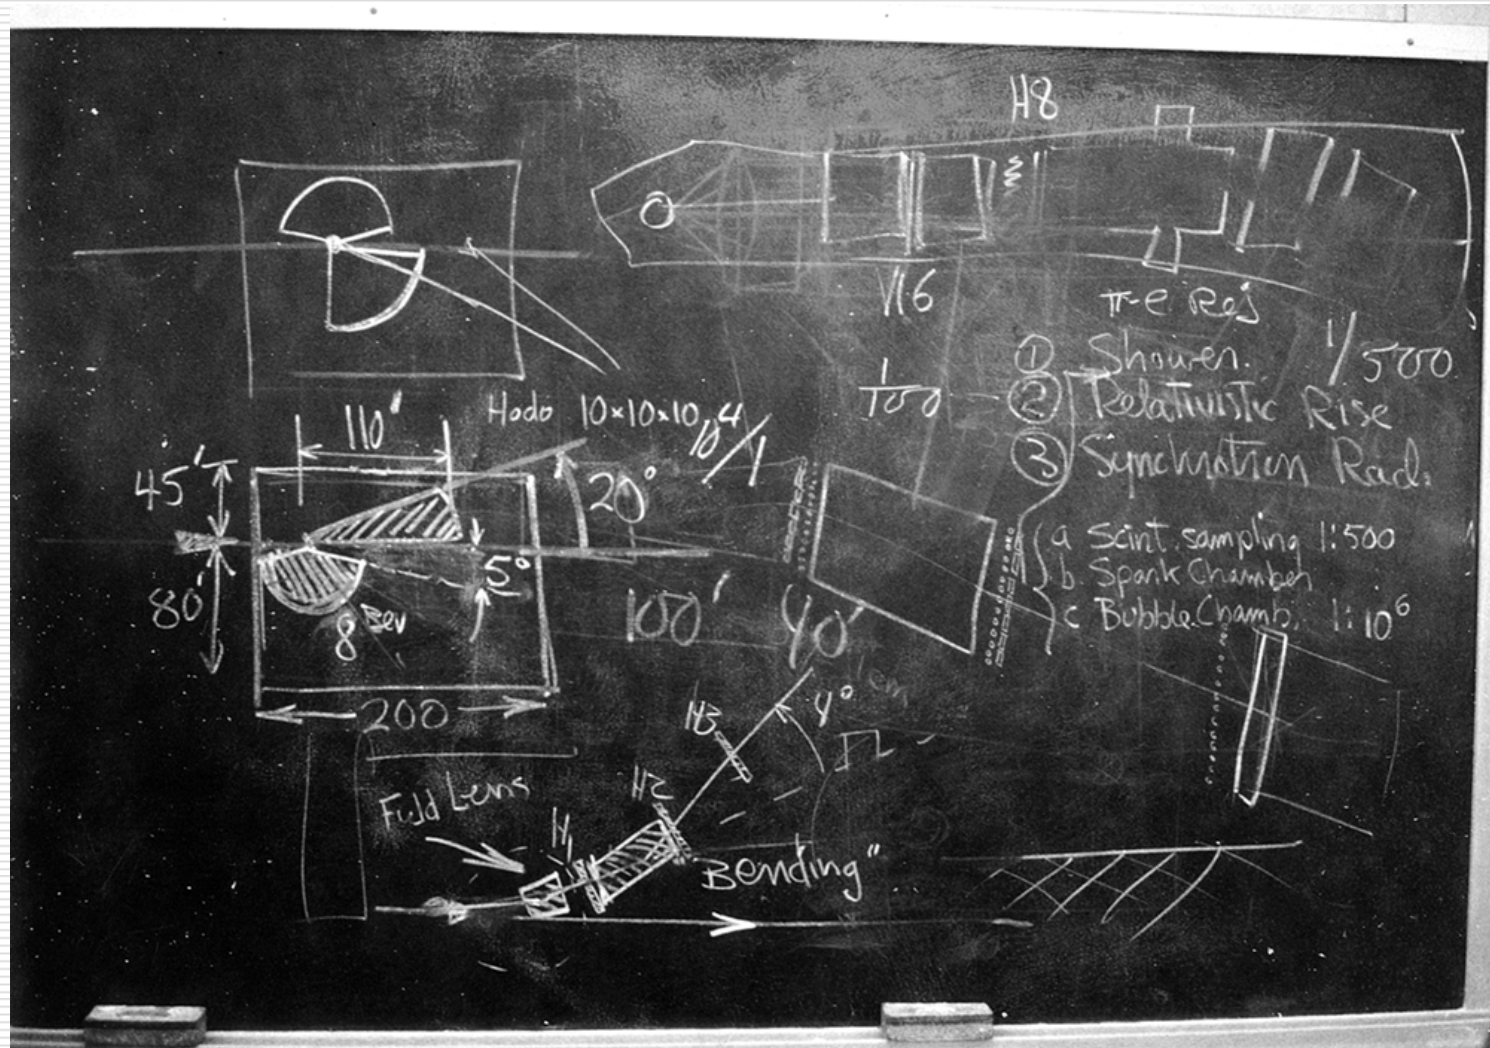 H8
V16
π-e Rej
① Shower. 1/500
1/100 - ② Relativistic Rise
③ Synchrotron Rad.
a Scint. sampling 1:500
b. Spark Chamber
c Bubble Chamb. 1:10⁶
110'
Hodo 10×10×10 10⁴/1
45'
20°
5°
80'
8 Bev
100'
40'
200
Field Lens
H1
H2
H3
4°
Bending"